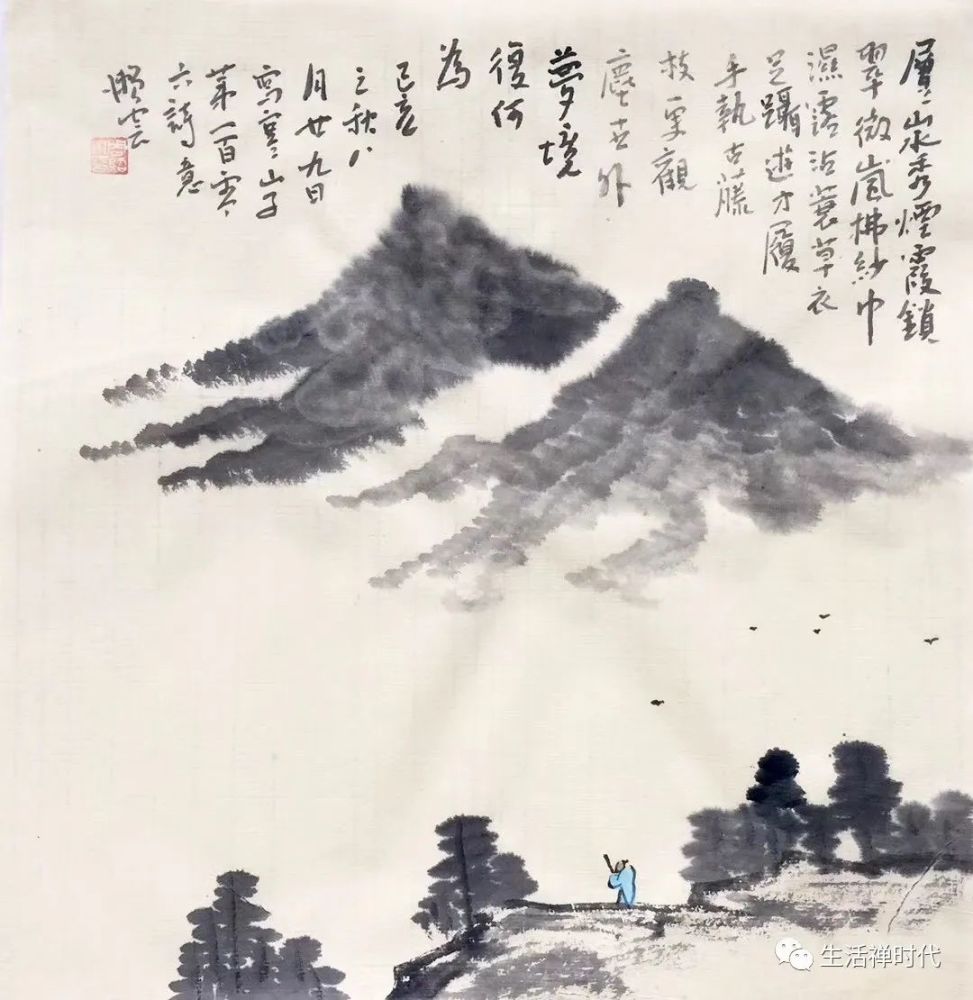 層層山水秀煙霞鎖
翠微嵐拂紗巾
濕露沾蓑草衣
足躡遊方履
手執古藤
枝更觀
塵世外
夢境
復何
為
己亥
之秋八
月廿九日
寫寒山子
第一百零
六詩意
生活禅时代